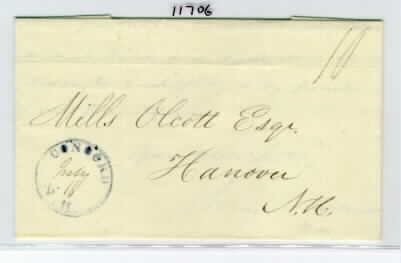 11706
10
Mills Olcott Esqr.
Hanover
N.H.
CONCORD
July
18